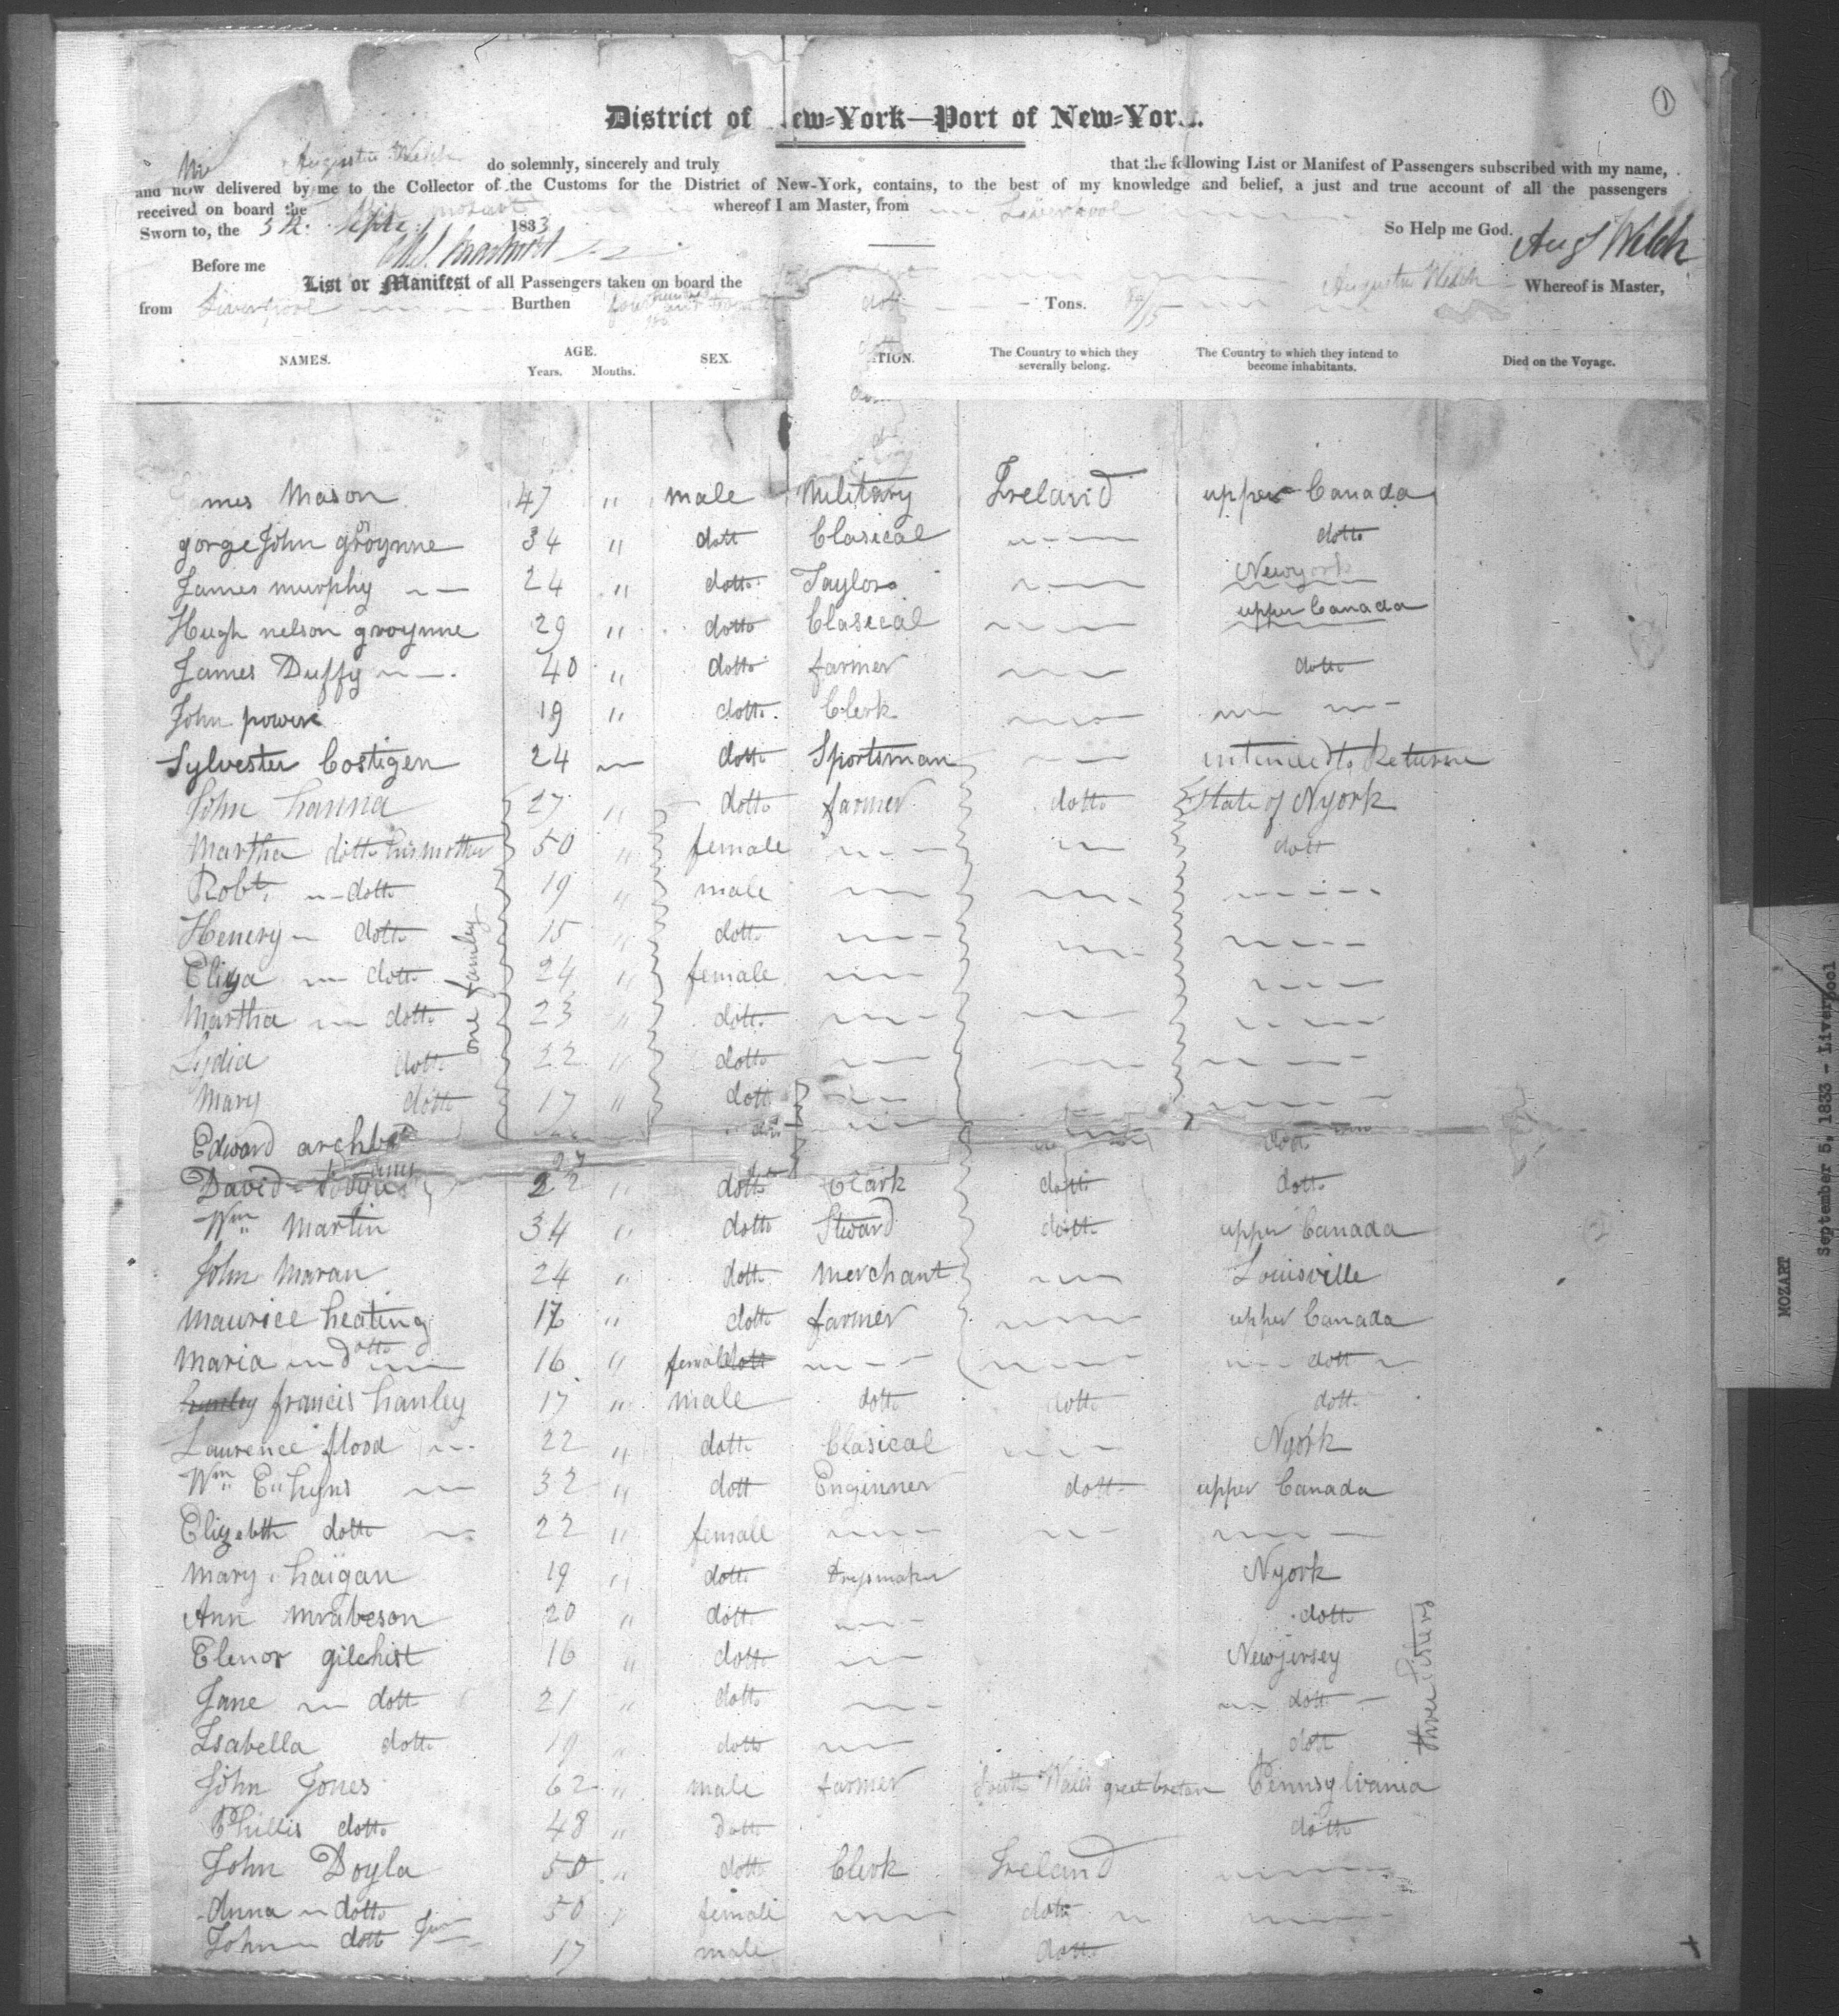 District of ew-York—Port of New-Yor
1
Augustus Welch do solemnly, sincerely and truly that the following List or Manifest of Passengers subscribed with my name,
and now delivered by me to the Collector of the Customs for the District of New-York, contains, to the best of my knowledge and belief, a just and true account of all the passengers
received on board the Ship Mozart whereof I am Master, from Liverpool
Sworn to, the 5th. Septe. 1833 So Help me God. Aug Welch
Before me
List or Manifest of all Passengers taken on board the
from Liverpool Burthen four hundred Tons. Augustus Welch Whereof is Master,
NAMES. AGE. Years. Months. SEX. TION. The Country to which they severally belong. The Country to which they intend to become inhabitants. Died on the Voyage.
mes Mason 47 " male Military Ireland upper Canada
gorge John groynne 34 " dott Clasical dotto
James murphy 24 " dotto Taylor Newyork
Hugh nelson groynne 29 " dotto Clasical upper Canada
James Duffy 40 " dotto farmer dotto
John power 19 " dotto. Clerk
Sylvester Costigen 24 dotto Sportsman intended to Returne
John hanna 27 " dotto farmer dotto State of Nyork
Martha dotto his mother 50 " female dott
Robt. dotto 19 " male
Henery dotto 15 " dotto
Eliza dotto 24 " female
Martha dotto 23 " dotto
Lydia dotto 22 " dotto
Mary dotto 17 " dott
one family
Edward dott
David 22 " dotto Clark dotto dotto
Wm Martin 34 " dotto Stward dotto upper Canada
John Maran 24 " dotto merchant Louisville
Maurice heating 17 " dotto farmer upper Canada
Maria dotto 16 " female dott
francis hanley 17 " male dotto dotto dott
Laurence flood 22 " dotto Clasical Nyork
Wm E" hyns 32 " dott Enginner dott upper Canada
Elizabth dotto 22 " female
Mary haigan 19 " dotto dressmaker Nyork
Ann 20 " dott dotto
Elenor gilchist 16 " dotto Newjersey
Jane dott 21 " dotto dott
Isabella dott 19 " dotto dott
three sisters
John Jones 62 " male farmer South Wales greet bretan Pennsylvania
Phillis dotto 48 " dotto dotto
John Doyla 50 " dotto Clerk Ireland
Anna dotto 50 " female dotto
John dott Jun 17 male dotto
MOZART
September 5, 1833 - Liverpool